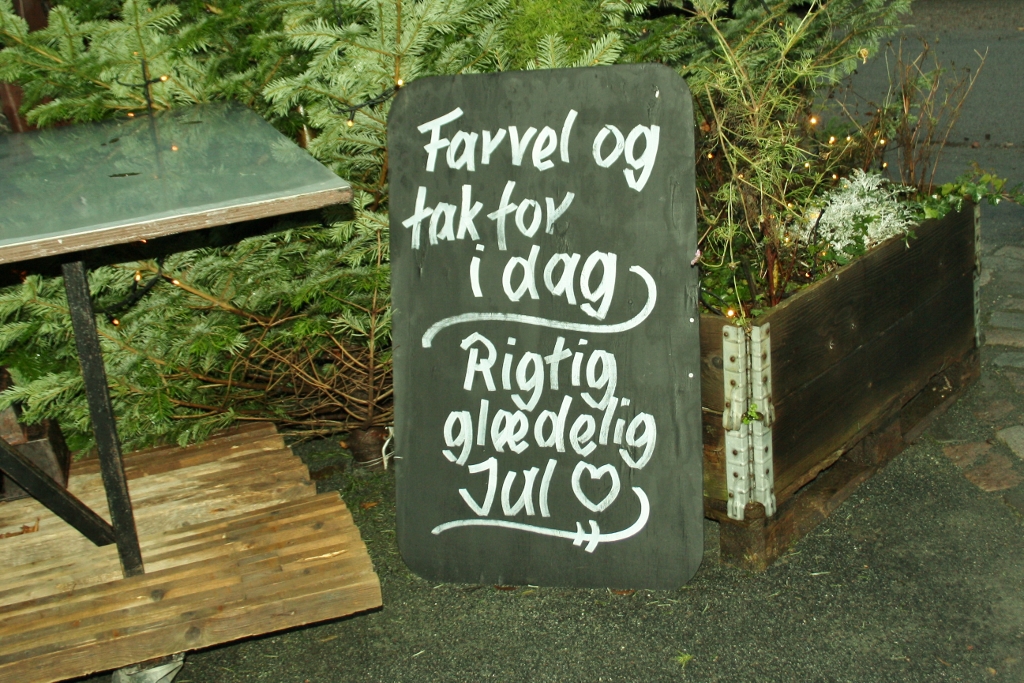 Farvel og
tak for
i dag
Rigtig
glædelig
Jul ♡